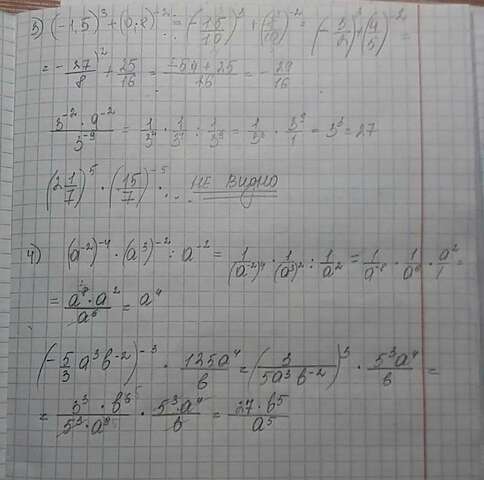 3) (-1,5)^3 + (0,8)^{-2} = (-15/10)^3 + (8/10)^{-2} = (-3/2)^3 + (4/5)^{-2} =
= -27/8 + 25/16 = (-54+25)/16 = -29/16
(3^{-2} · 9^{-2})/3^{-9} = 1/3^2 · 1/3^4 : 1/3^9 = 1/3^6 · 3^9/1 = 3^3 = 27
(2 1/7)^5 · (15/7)^{-5} ... НЕ ВИДНО
4) (a^{-2})^{-4} · (a^3)^{-2} : a^{-2} = 1/(a^{-2})^4 · 1/(a^3)^2 : 1/a^2 = 1/a^{-8} · 1/a^6 · a^2/1 =
= (a^8 · a^2)/a^6 = a^4
(-5/3 a^3 b^{-2})^{-3} · 125a^4/b = (3/(5a^3 b^{-2}))^3 · 5^3a^4/b =
= (3^3 · b^6)/(5^3 · a^9) · 5^3 · a^4/b = 27 · b^5/a^5